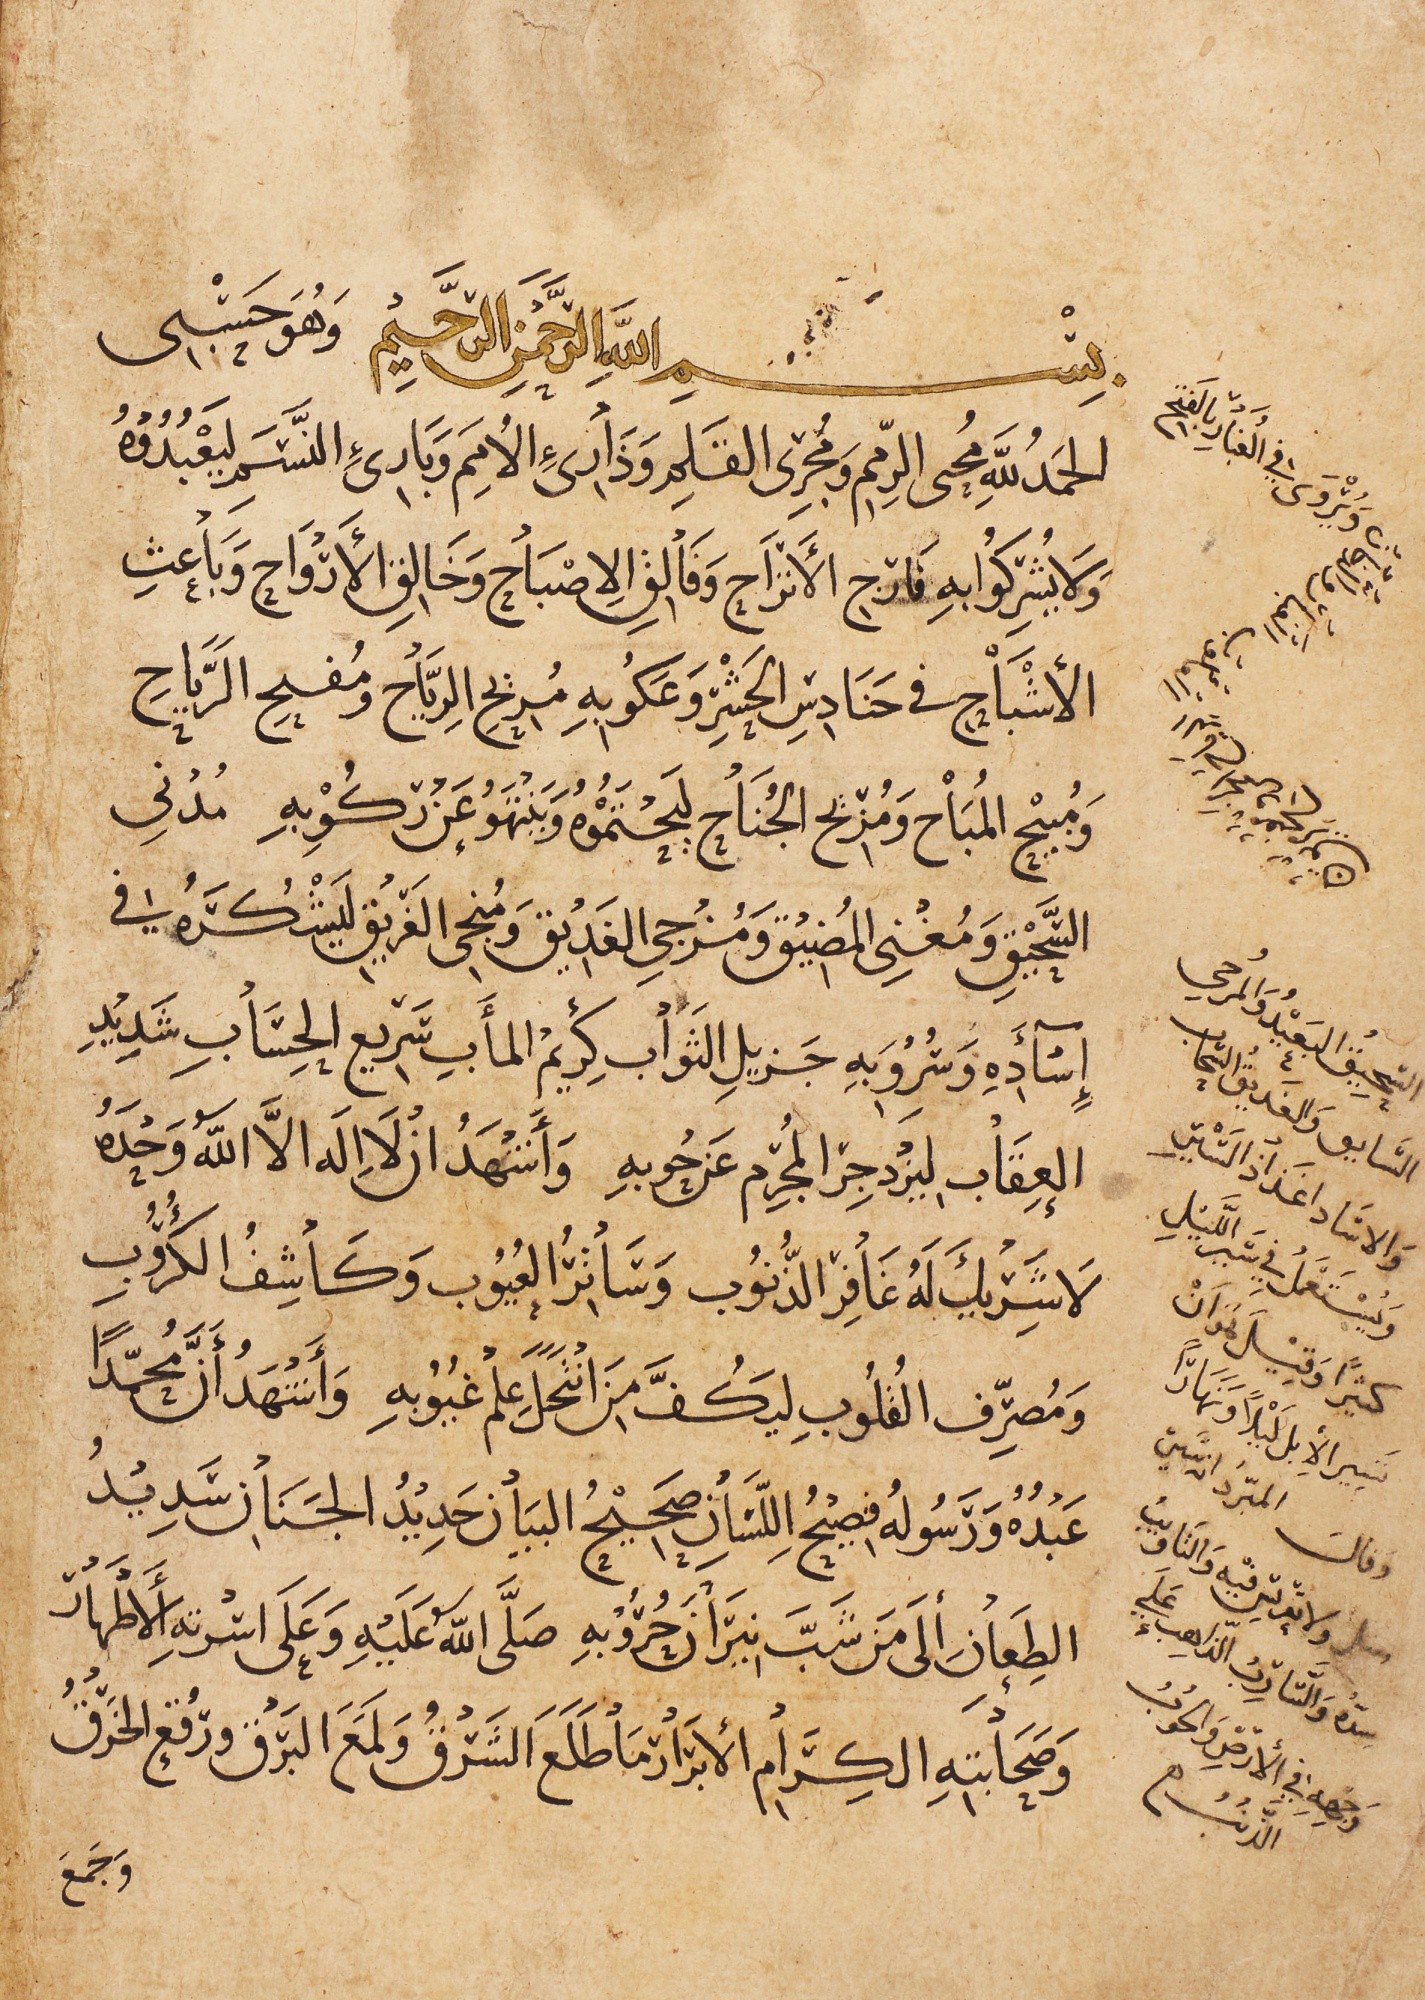 بِسْمِ اللَّهِ الرَّحْمَنِ الرَّحِيمِ وَهُوَ حَسْبِي
الحَمْدُ لِلَّهِ مُحيي الرِّمَمِ وَمُجْرِي القَلَمِ وَذَارِئِ الأُمَمِ وَبَارِئِ النَّسَمِ لِيَعْبُدُوهُ
وَلَا يُشْرِكُوا بِهِ فَارِجِ الأَتْرَاحِ وَفَالِقِ الإِصْبَاحِ وَخَالِقِ الأَرْوَاحِ وَبَاعِثِ
الأَشْبَاحِ في حَنَادِسِ الحَشْرِ وَعَكُوبِهِ مُرِيحِ الرِّيَاحِ وَمُفِيحِ الرَّبَاحِ
وَمُبِيْحِ المُبَاحِ وَمُزِيحِ الجُنَاحِ لِيَحْتَمُوْهُ وَيَنْتَهُوا عَنْ رُكُوْبِهِ مُدْنِي
السَّحِيْقِ وَمُغْنِي المُضِيْقِ وَمُزْجِي الغَدِيْقِ وَمُنْجِي الغَرِيْقِ لِيَشْكُرَهُ في
إِسْآدِهِ وَسُرُوبِهِ جَزِيلِ الثَّوَابِ كَرِيمِ المَآبِ سَرِيعِ الحِسَابِ شَدِيْدِ
العِقَابِ لِيَزْدَجِرَ المُجْرِمُ عَنْ حُوبِهِ وَأَشْهَدُ انْ لَا اِلَهَ الاَّ اللَّهُ وَحْدَهُ
لَا شَرِيْكَ لَهُ غَافِرُ الذُّنُوبِ وَسَاتِرُ العُيُوبِ وَكَاشِفُ الكُرُوبِ
وَمُصَرِّفُ القُلُوبِ لِيَكُفَّ مَنِ انْتَحَلَ عِلْمَ غُيُوبِهِ وَأَشْهَدُ أَنَّ مُحَمَّدًا
عَبْدُهُ وَرَسُولُهُ فَصِيْحُ اللِّسَانِ صَحِيْحُ البَيَانِ حَدِيْدُ الجَنَانِ شَدِيْدُ
الطِعَانِ ألَى مَنْ شَبَّ نِيرَانَ حُرُوبِهِ صَلَّى اللَّهُ عَلَيْهِ وَعَلَى اسْرَتِهِ الأَطْهَارِ
وَصَحَابَتِهِ الكِرَامِ الأَبْرَارِ مَا طَلَعَ الشَرْقُ وَلَمَعَ البَرْقُ ورُقِعَ الخَرْقُ
وَجَمَعَ
وَيُرْوَى في الغبار بالفتح
السَّحِيْقُ البَعِيْدُ وَالمزجي
السَايق وَالغَدِيْقُ السَّحَاب
وَالاسَاد اغذاذ السَّيْرِ
وَيُسْتَعْمَلُ في سَيرِ اللَّيلِ
كَثِيرًا وَقِيْلَ هُوَ انْ
تَسِير الأِبل لَيْلًا وَنَهَارًا
وَقَالَ المبَرِّد
وَالسَّارِبُ الذّاهِبُ عَلَى
وَجْهِهِ في الأَرْضِ وَالحُوْبُ
الذَّنْبُ